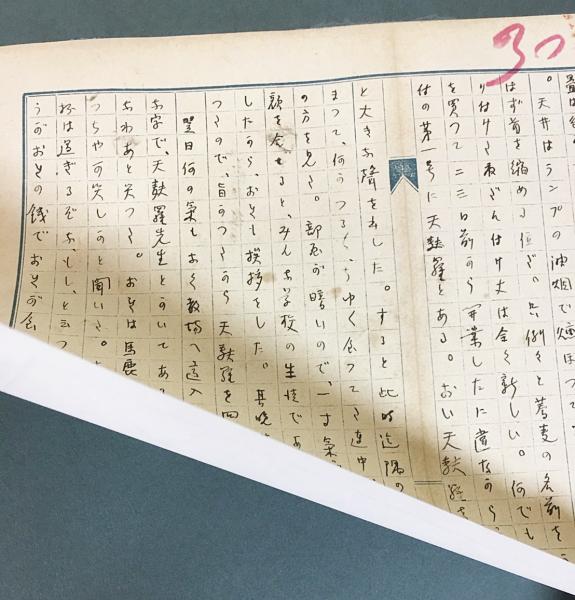 。天井はランプの油烟で燻ぼつて
はず首を縮める位だ。只例々と蕎麦の名前を
り付けたねだん付け丈は全く新しい。何でも
を買つて二三日前から開業したに違なから
付の第一号に天麩羅とある。おい天麩羅を
と大きな聲を出した。すると此時迄隅の
まつて、何かつるつるちゆく食つてた連中
の方を見た。部屋が暗いので、一寸気
顔を合せると、みんな学校の生徒であ
したからおれも挨拶をした。其晩
つたので、旨かつたから天麩羅を四
翌日何の気もなく教場へ這入
な字で、天麩羅先生とかいてあ
なわあと笑つた。おれは馬鹿
つちや可笑しいかと聞いた。
杯は過ぎるぞな、もし、と云つ
うがおれの銭でおれが食
3つ